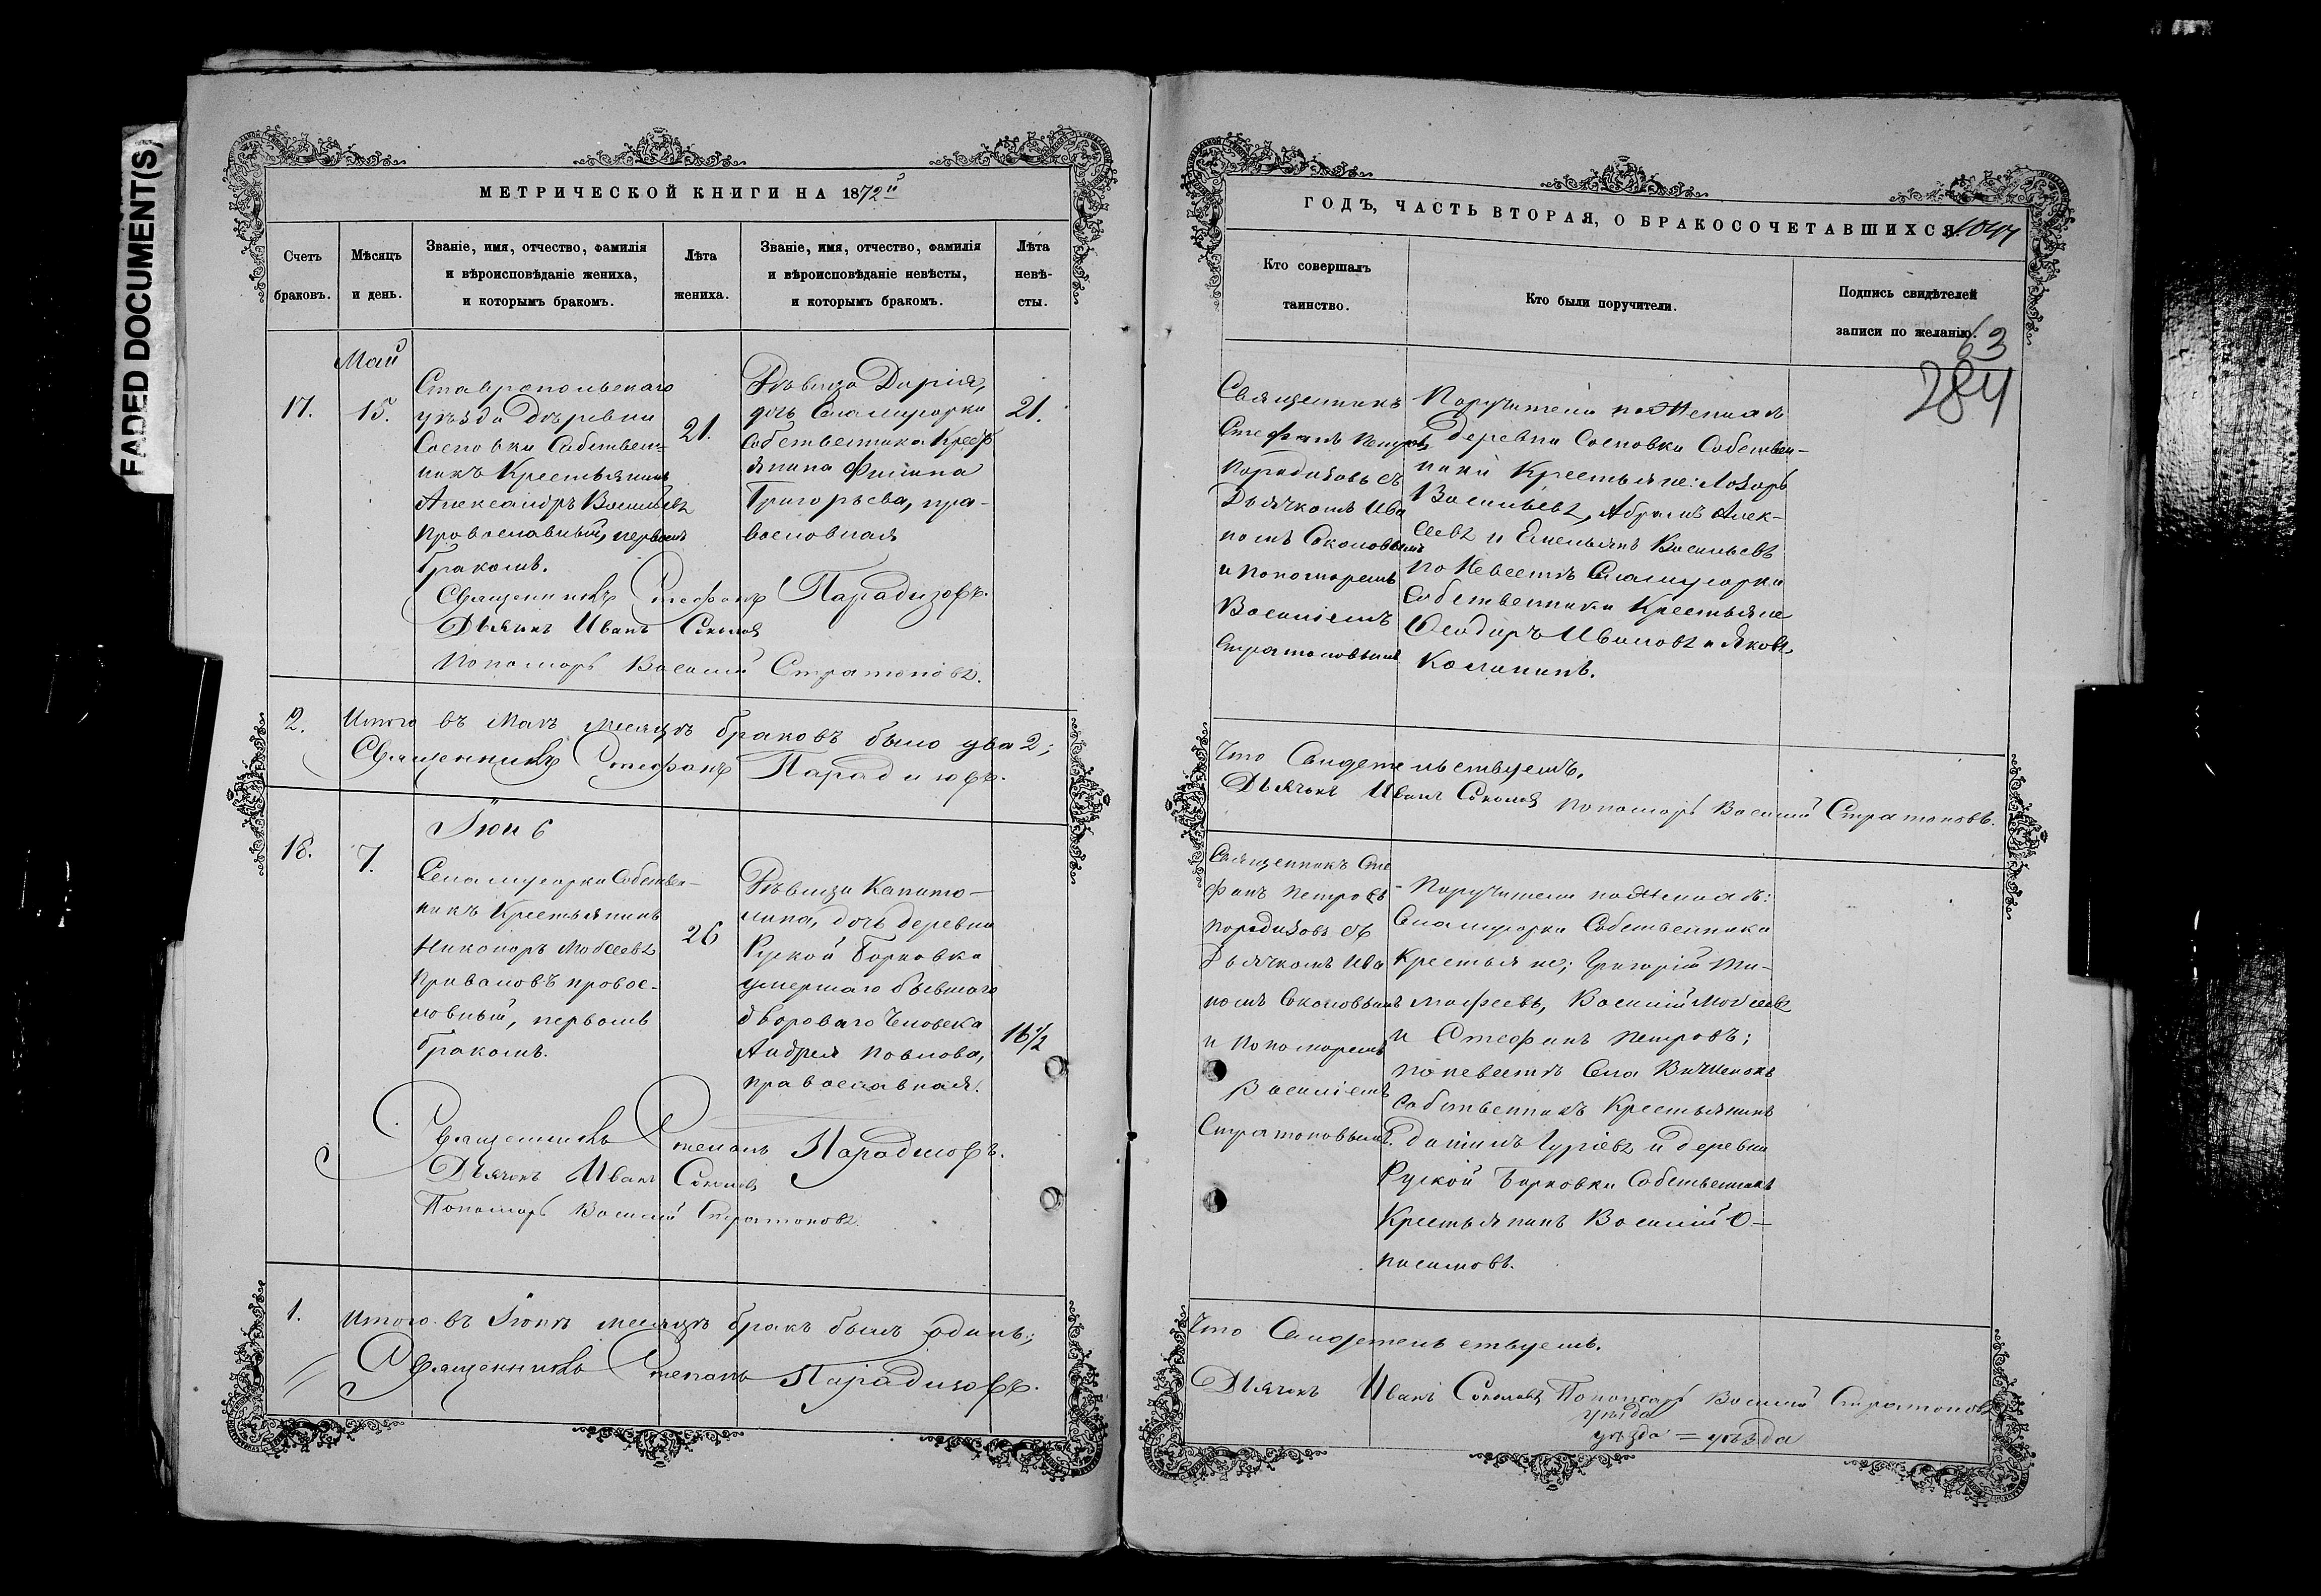 FADED DOCUMENT(S)
МЕТРИЧЕСКОЙ КНИГИ НА 1872й
Счетъ браковъ.
Мѣсяцъ и день.
Званіе, имя, отчество, фамилія
и вѣроисповѣданіе жениха,
и которымъ бракомъ.
Лѣта жениха.
Званіе, имя, отчество, фамилія
и вѣроисповѣданіе невѣсты,
и которымъ бракомъ.
Лѣта
невѣ-
сты.
Май
17.
15.
Ставропольскаго
уѣзда Дѣревни
Сосновки Собствен-
никъ Крестьянинъ
Александръ Васильевъ
православный, первымъ
бракомъ.
21.
Дѣвица Дарія,
дочь Села
Собственника Крест
янина Филипа
Григорьева, пра-
вославная
21.
Священникъ Стефанъ Парадизовъ.
Дьячекъ Иванъ Соколов
Пономарь Василий Стратоновъ.
2.
Итого въ Маѣ месяцѣ браковъ было два 2;
Священникъ Стефанъ Парадизовъ.
Іюнь
18.
7.
Села Собствен-
никъ Крестьянинъ
Никаноръ Моисеевъ
Приваловъ провос-
ловный, первымъ
бракомъ.
26
Дѣвица Капито-
лина, дочь деревни
Руской Борковки
умершаго бывшаго
двороваго Человека
Андрея Павлова,
православная.
16 1/2
Священникъ Степанъ Парадизовъ.
Дьячекъ Иванъ Соколовъ
Пономарь Василий Стратоновъ.
1.
Итого въ Іюнѣ месяцѣ бракъ былъ одинъ;
Священникъ Степанъ Парадизовъ.
ГОДЪ, ЧАСТЬ ВТОРАЯ, О БРАКОСОЧЕТАВШИХСЯ
Кто совершалъ
таинство.
Кто были поручители.
Подпись свидѣтелей
записи по желанію.
63
284
Священникъ
Стефанъ Петровъ
Порадизовъ съ
Дьячкомъ Ива
номъ Соколовымъ
и Пономаремъ
Василіемъ
Стратоновымъ
Поручители по Женихѣ
Деревни Сосновки Собствен-
ники Крестьяне: Лазарь
Васильевъ, Абрамъ Алек-
сеевъ и Емельянъ Васильевъ
по Невестѣ Села
Собственники Крестьяне
Феодоръ Ивановъ и Яковъ
Калининъ.
Что Свидетельствуемъ.
Дьячекъ Иванъ Соколов Пономарь Василий Стратоновъ.
Священникъ Сте
фанъ Петровъ
Порадизовъ съ
Дьячкомъ Ива
номъ Соколовымъ
и Пономаремъ
Василіемъ
Стратоновымъ.
Поручители по Женихѣ:
Села Собственники
Крестьяне; Григорій Ти-
мофеевъ, Василій Моисеевъ
и Стефанъ Петровъ;
по невестѣ Села
Собственникъ Крестьянинъ
Данилъ Гуріевъ и деревни
Руской Борковки Собственникъ
Крестьянинъ Василій
Что Свидетельствуемъ.
Дьячекъ Иванъ Соколовъ Пономарь Василий Стратоновъ
уѣзда
уѣзда = уѣзда